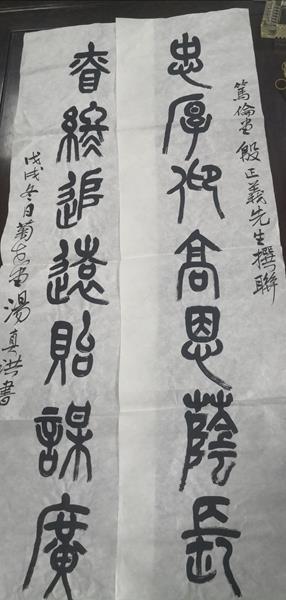 篤倫堂殷正義先生撰聯
忠厚仰高恩蔭長
昚終追遠貽謀廣
戊戌冬日菊堂湯真洪書